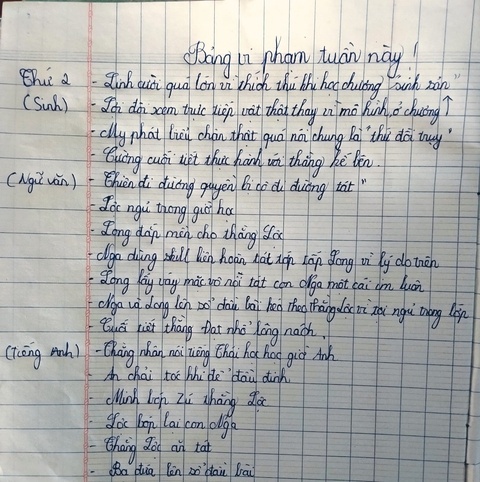 Bảng vi phạm tuần này!
Thứ 2 - Linh cười quá lớn vì thích thú khi học chương "sinh sản"
(Sinh) - Lôi đòi xem trực tiếp vật thật thay vì mô hình ở chương ↑
- My phát biểu chân thật quá nói chung là "thú đồi trụy"
- Cường cuối tiết thực hành với thằng kế bên.
(Ngữ văn) - Thiên đi đường quyền bị cô đi đường tát"
- Lộc ngủ trong giờ học
- Long đắp mền cho thằng Lộc
- Nga dùng skull liên hoàn tát tấp Long vì lý do trên
- Long lấy váy mặc vô rồi tát con Nga một cái im luôn
- Nga và Long lên sổ đầu bài kéo theo thằng Lộc vì tội ngủ trong lớp
- Cuối tiết thằng Đạt nhổ lông nách
(Tiếng Anh) - Thằng nhân nói tiếng Thái học học giờ Anh
- An chải tóc khỉ đế đầu đinh
- Minh bóp Zú thằng Lộc
- Lộc bóp lại con Nga
- Thằng Lộc ăn tát
- Ba đứa lên sổ đầu bài